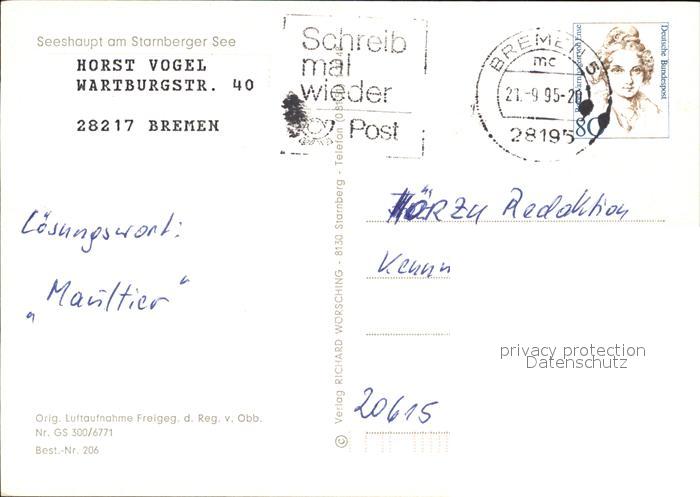 Seeshaupt am Starnberger See
HORST VOGEL
WARTBURGSTR. 40
28217 BREMEN
Schreib
mal
wieder
Post
BREMEN 5
mc
21.-9.95-20
28195
Deutsche Bundespost
80
Lösungswort:
„Maultier"
HÖRZU Redaktion
Kennw
20615
© Verlag RICHARD WÖRSCHING - 8130 Starnberg - Telefon
privacy protection
Datenschutz
Orig. Luftaufnahme Freigeg. d. Reg. v. Obb.
Nr. GS 300/6771
Best.-Nr. 206